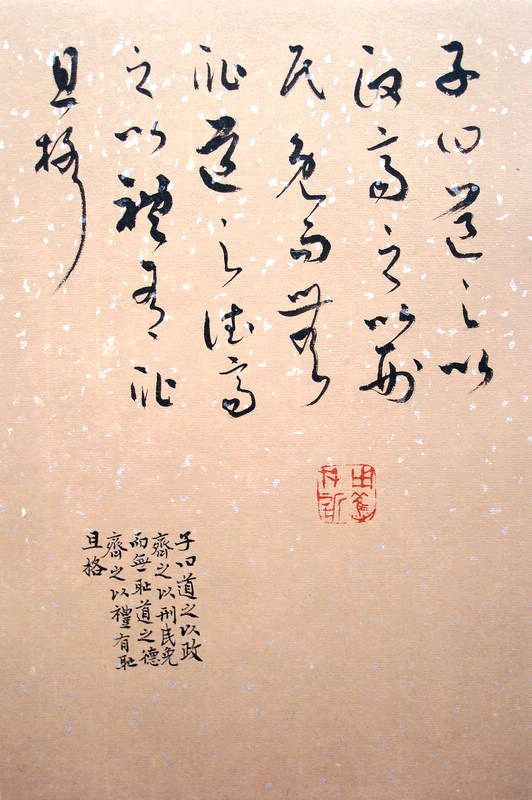 子曰道之以
政齊之以刑
民免而無
耻道之德齊
之以禮有耻
且格
子曰道之以政
齊之以刑民免
而無耻道之德
齊之以禮有耻
且格